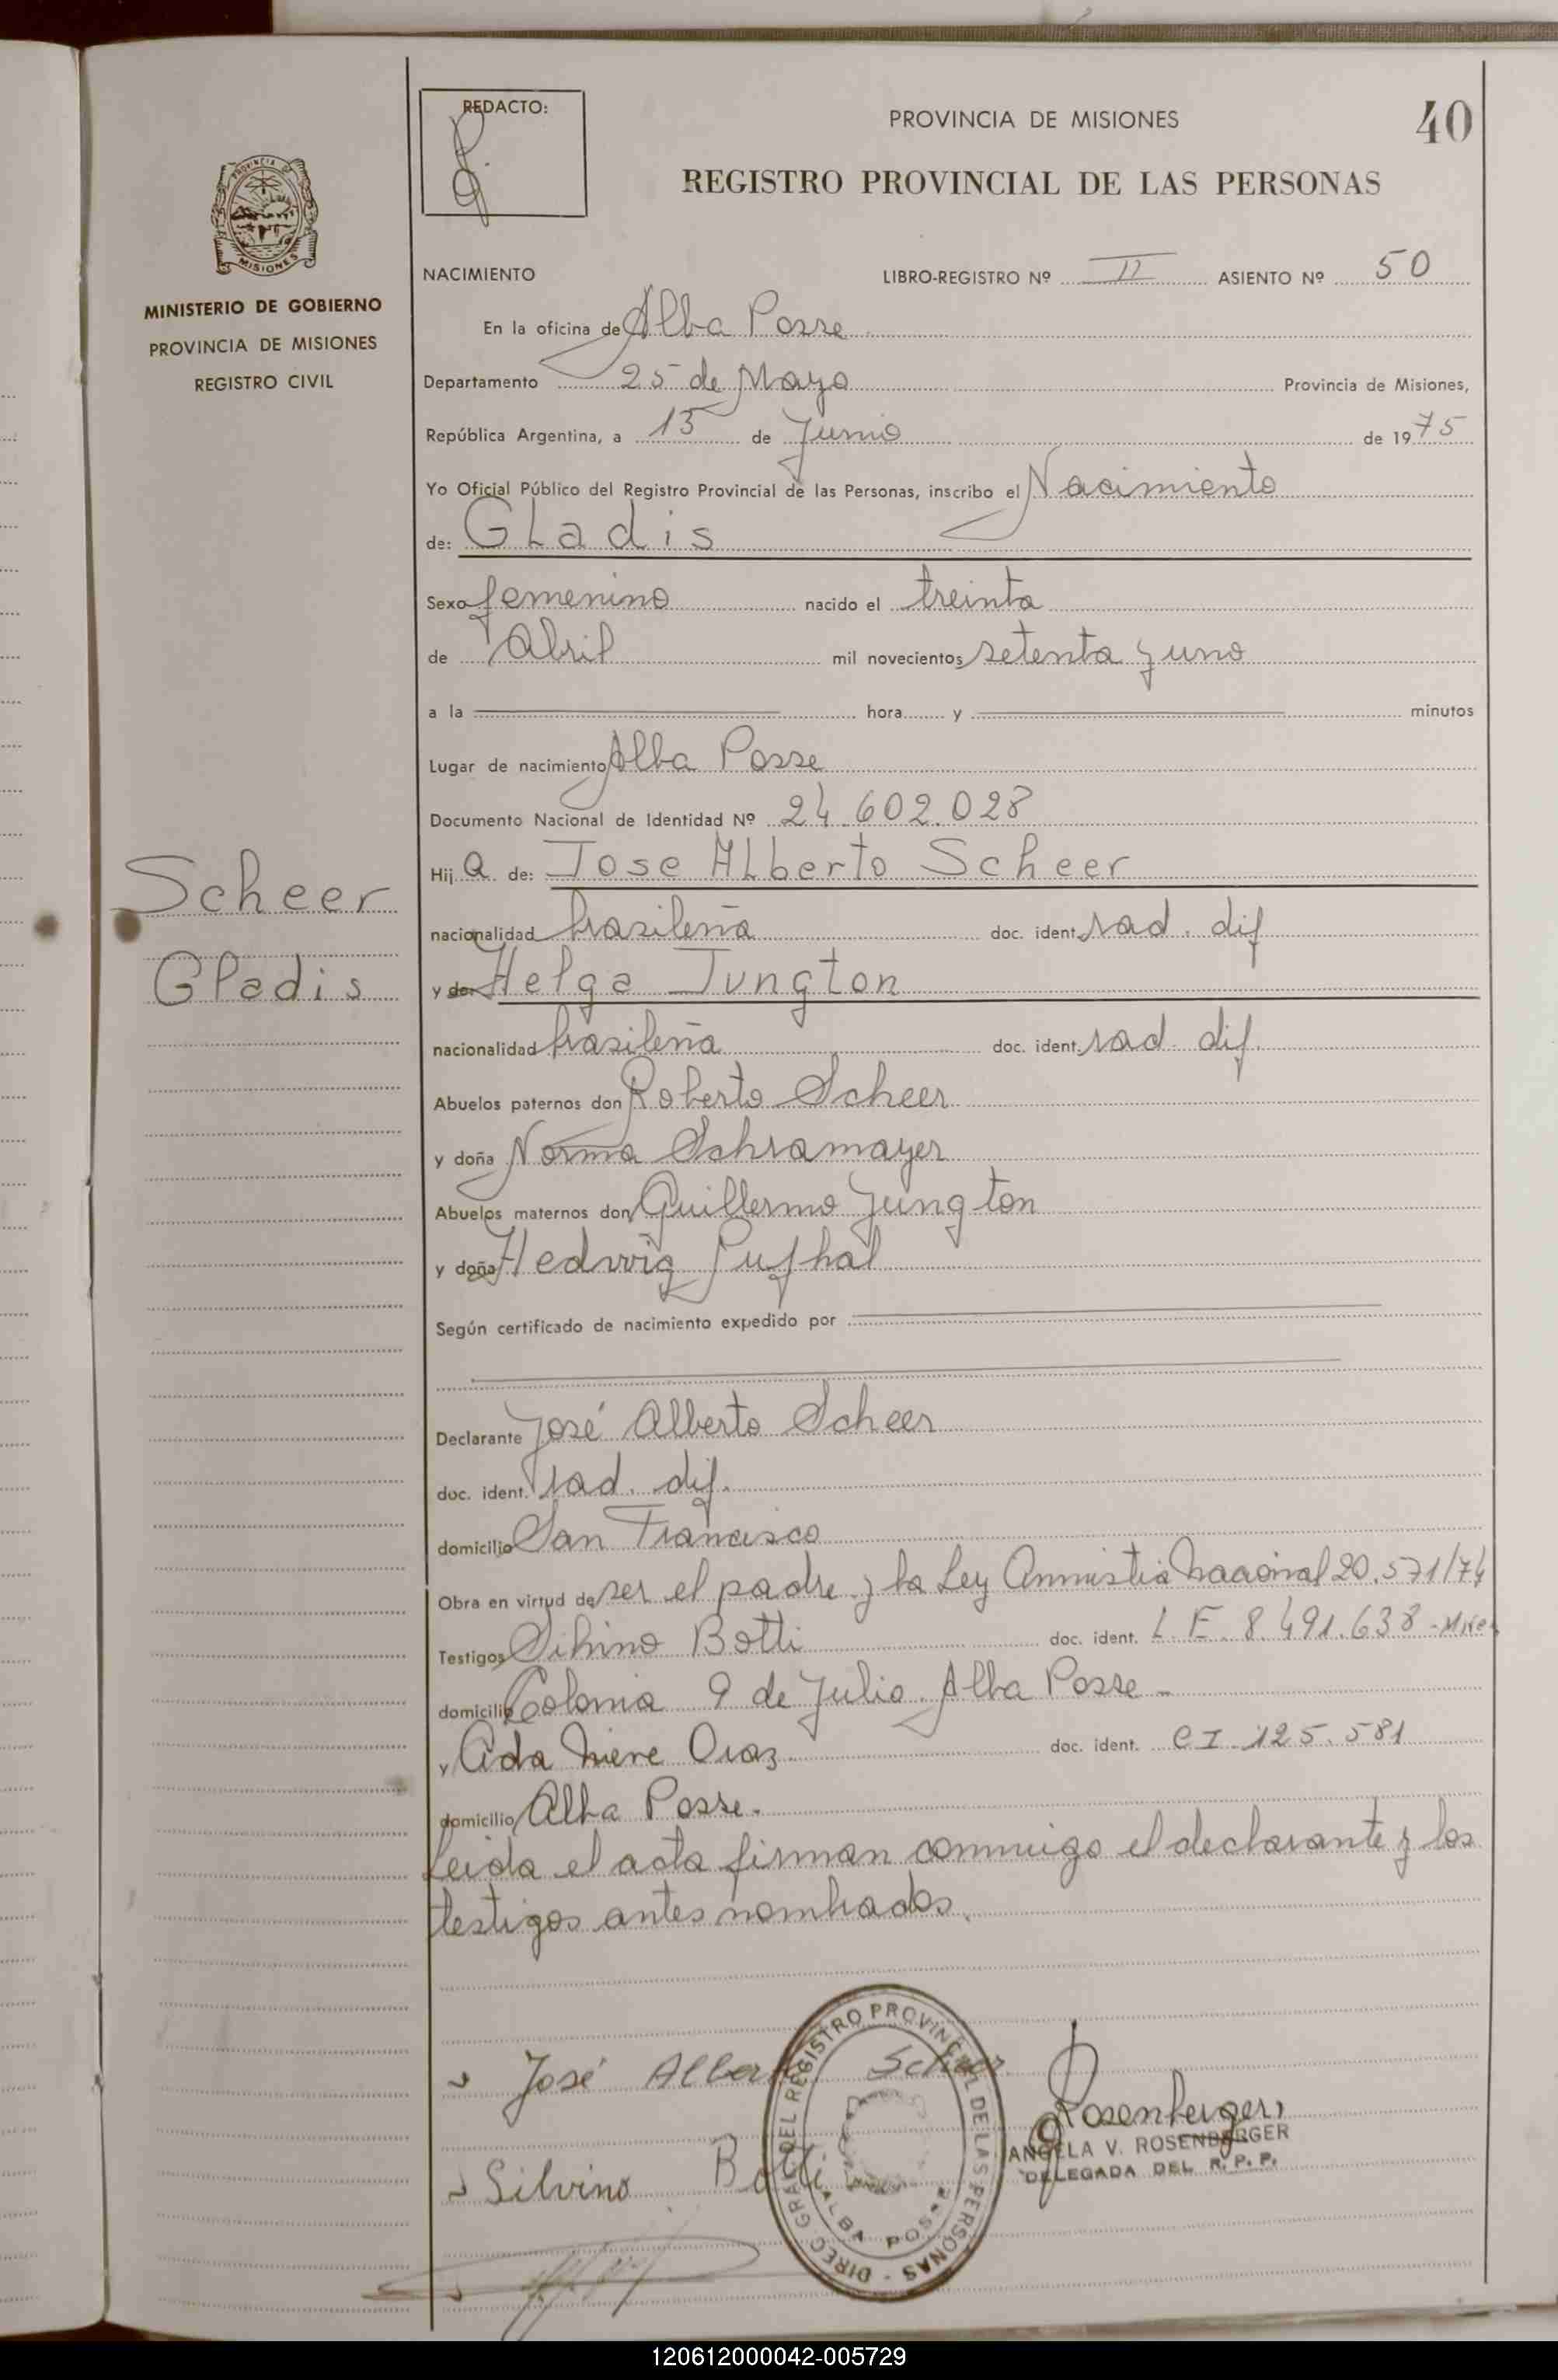 REDACTO:
PROVINCIA DE MISIONES
40
REGISTRO PROVINCIAL DE LAS PERSONAS
PROVINCIA DE
MISIONES
MINISTERIO DE GOBIERNO
PROVINCIA DE MISIONES
REGISTRO CIVIL
NACIMIENTO LIBRO-REGISTRO Nº II ASIENTO Nº 50
En la oficina de Alba Posse
Departamento 25 de Mayo Provincia de Misiones,
República Argentina, a 15 de Junio de 1975
Yo Oficial Público del Registro Provincial de las Personas, inscribo el Nacimiento
de: GLadis
Sexo femenino nacido el treinta
de Abril mil novecientos setenta y uno
a la hora y minutos
Lugar de nacimiento Alba Posse
Documento Nacional de Identidad Nº 24.602.028
Hija de: Jose ALberto Scheer
Scheer
nacionalidad brasileña doc. ident. rad. dif
Gladis
y de: Helga Jungton
nacionalidad brasileña doc. ident. rad. dif.
Abuelos paternos don Roberto Scheer
y doña Norma Schramayer
Abuelos maternos don Guillermo Jungton
y doña Hedwig Pufhal
Según certificado de nacimiento expedido por
Declarante José Alberto Scheer
doc. ident. rad. dif.
domicilio San Francisco
Obra en virtud de ser el padre y la Ley Amnistia Nacional 20.571/74
Testigos Silvino Botti doc. ident. L.E. 8.491.638 -Mnes
domicilio Colonia 9 de Julio. Alba Posse -
y Aida Diaz doc. ident. CI 125.581
domicilio Alba Posse.
Leida el acta firman conmigo el declarante y los
testigos antes nombrados.
José Alberto Scheer
Rosenberger
ANGELA V. ROSENBERGER
DELEGADA DEL R.P.P.
Silvino Botti
DIREC GRAL DEL REGISTRO PROVINCIAL DE LAS PERSONAS -
ALBA POSSE
120612000042-005729